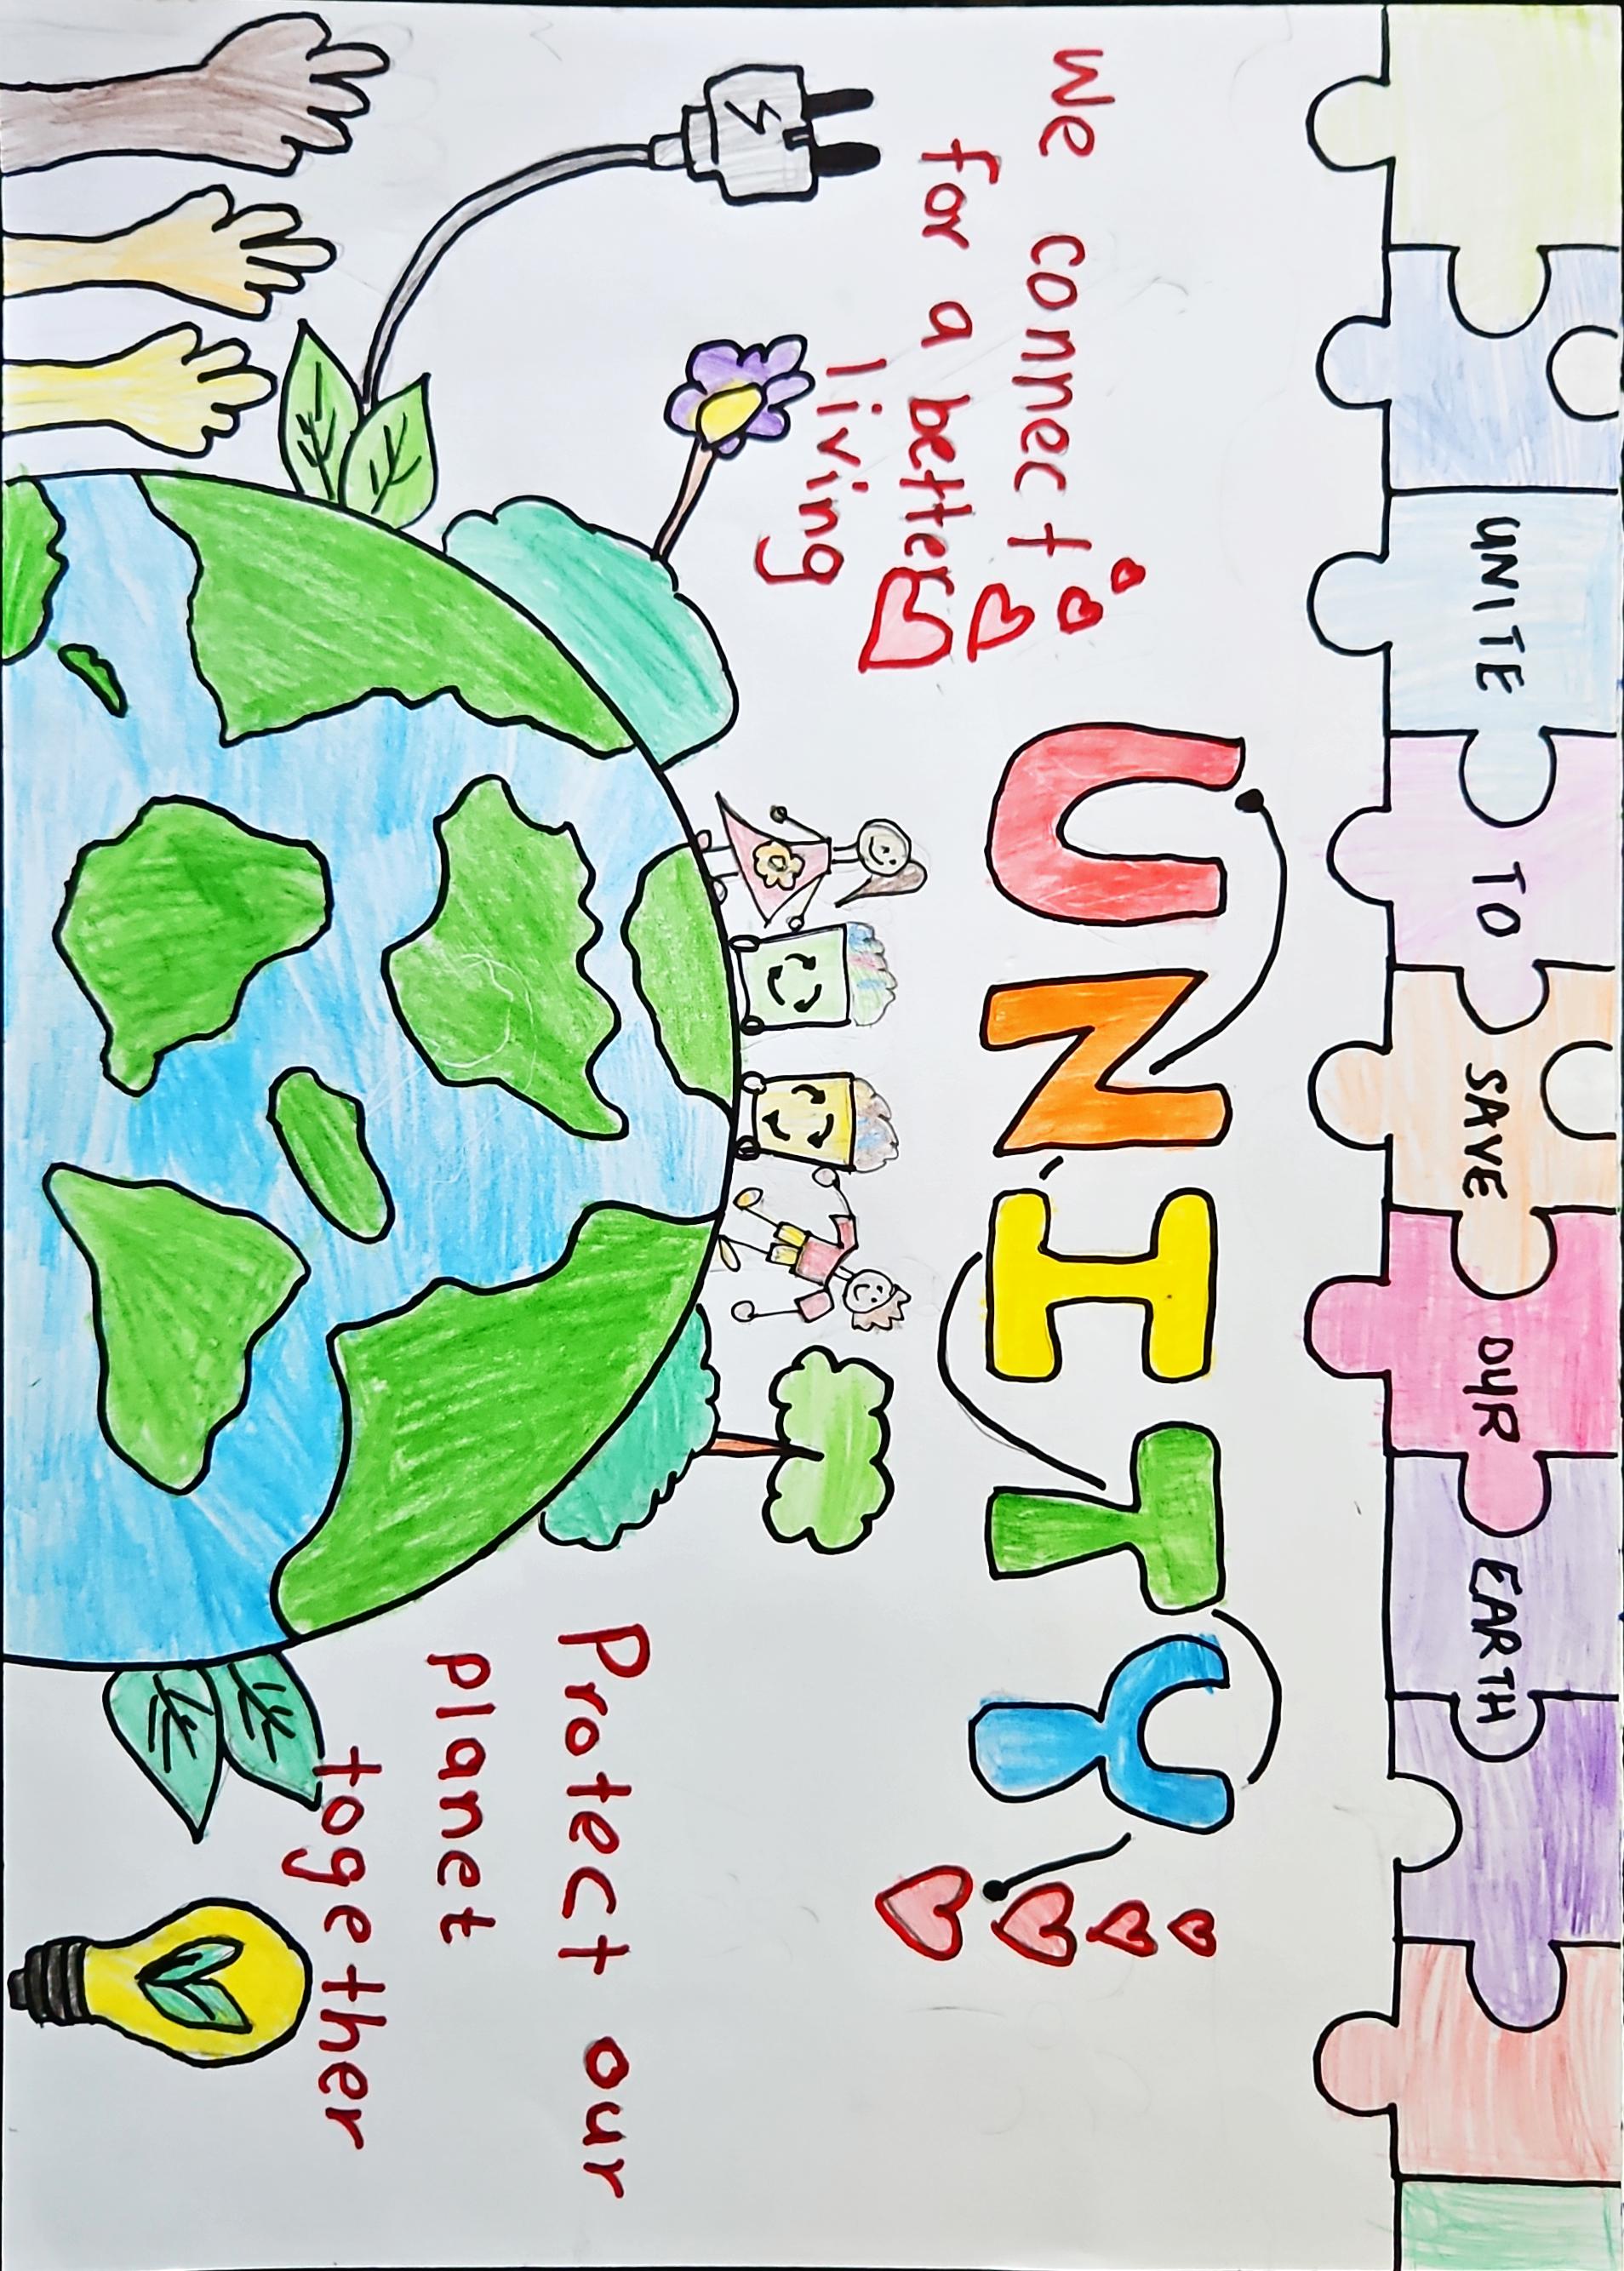 UNITE TO SAVE OUR EARTH
We connect
for a better
living
UNITY
Protect our
planet
together